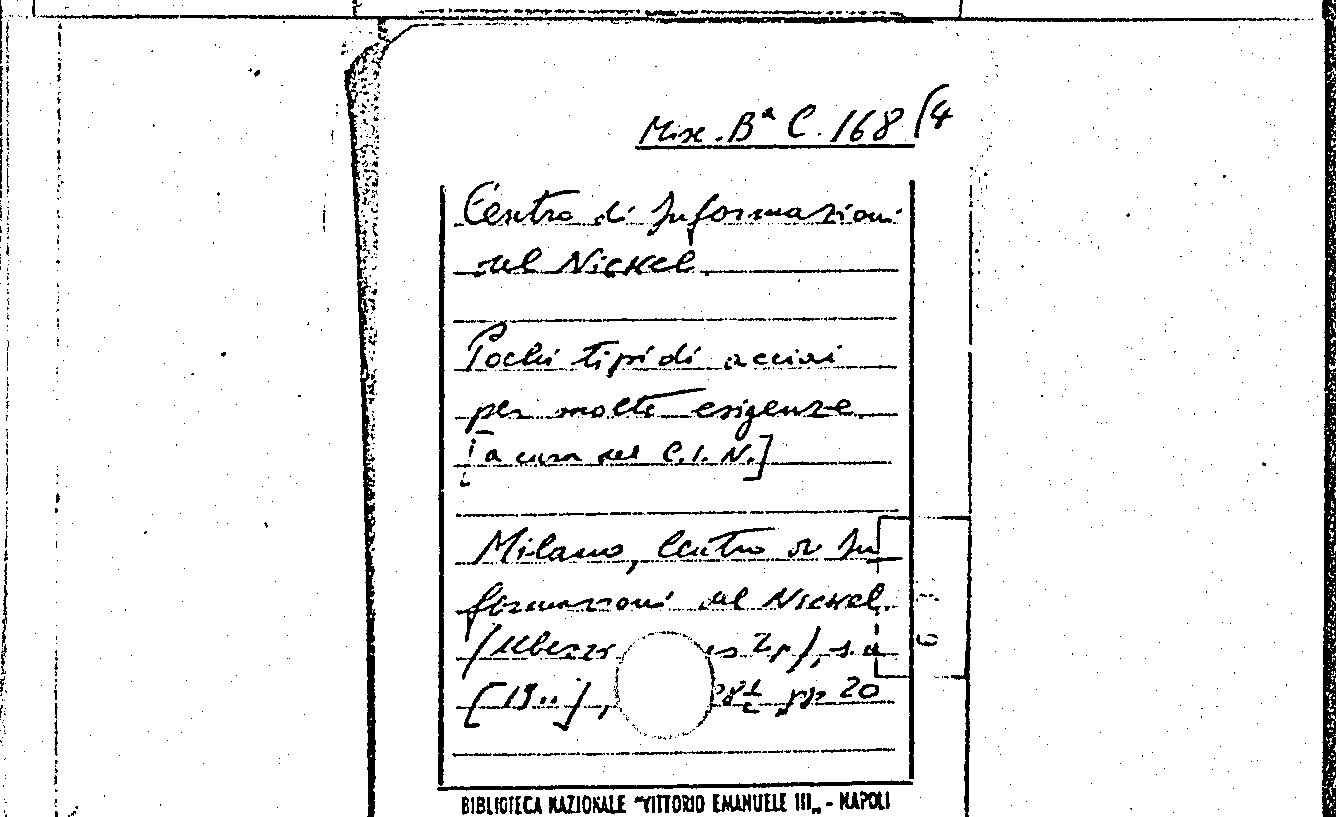 Misc. Bª C. 168/4
Centro di Informazioni
del Nickel
Pochi tipi di acciai
per molte esigenze
[a cura del C.I.N.]
Milano, Centro di In
formazioni del Nickel
s.a.
[19..], pp 20
BIBLIOTECA NAZIONALE "VITTORIO EMANUELE III„ - NAPOLI